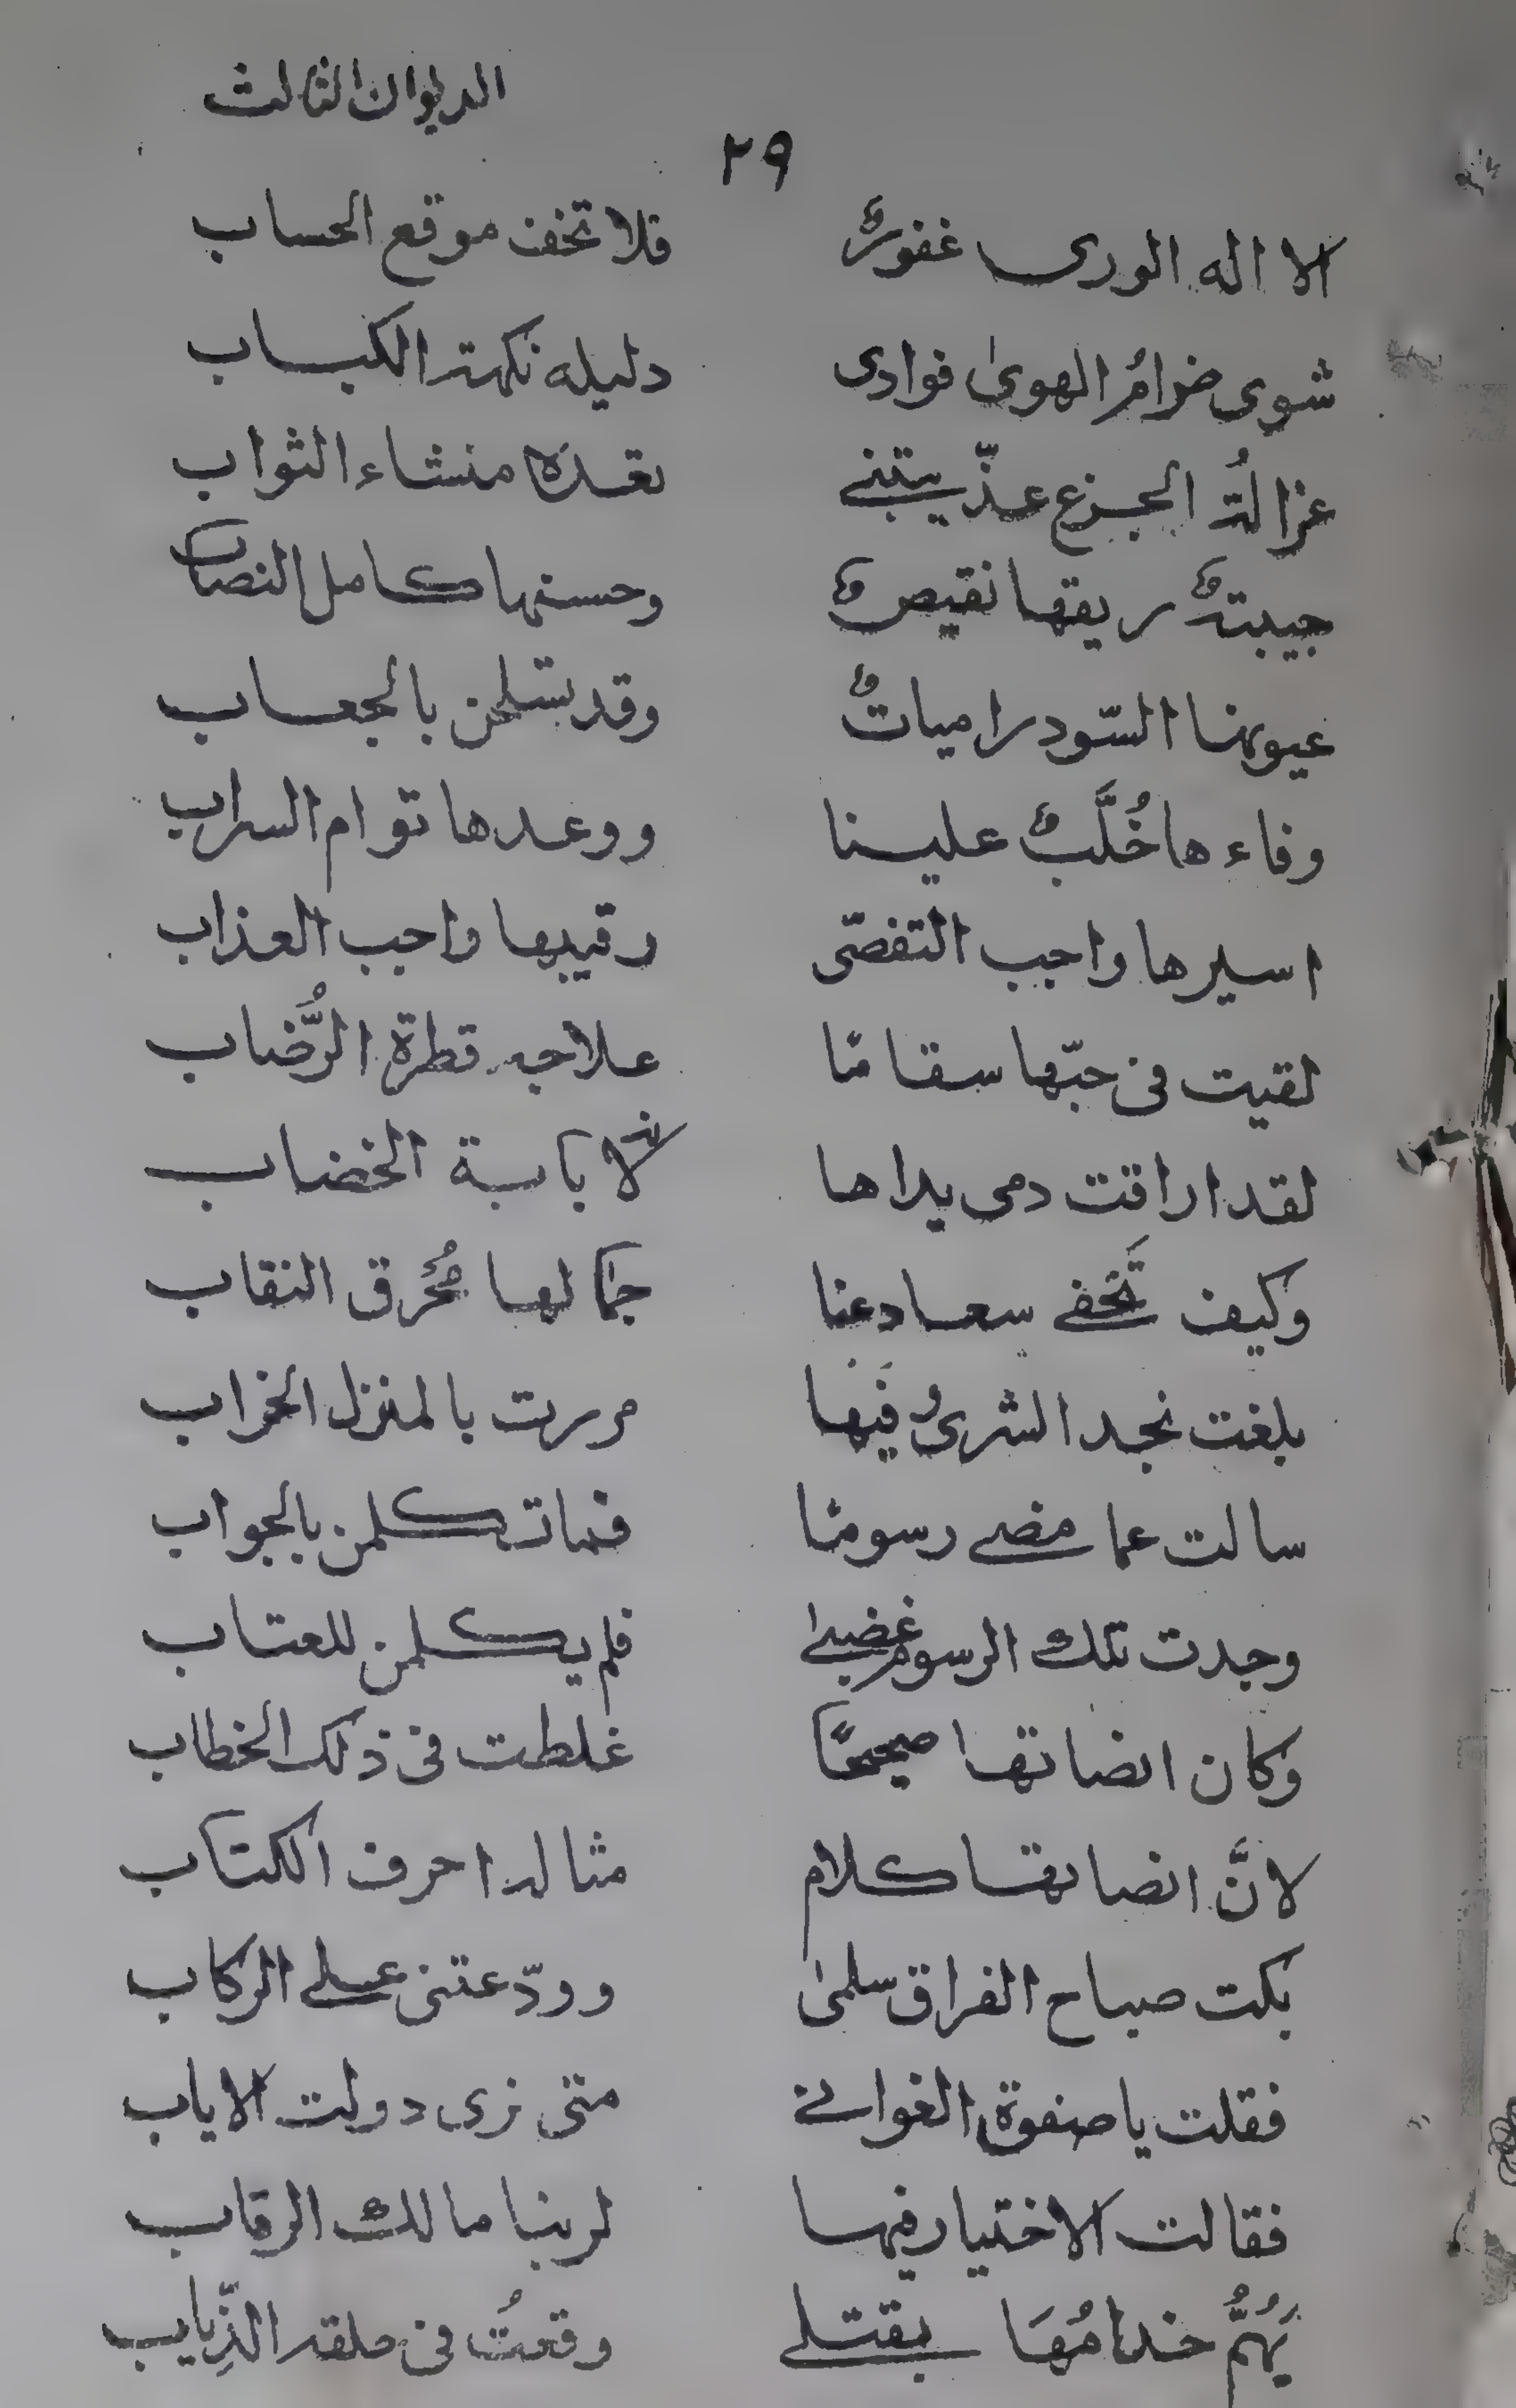 الديوان الثالث
٢٩
الا اله الورى غفورٌ فلا تخف موقع الحساب
شوى ضرامُ الهوىٰ فوادى دليله نكهة الكباب
غزالةُ الجزع عذّبتنى تعدّه منشاء الثواب
ريقها نقيصٌ وحسنها كامل النصاب
عيونها السّود رامياتٌ وقد تسلحن بالجعاب
وفاءها خُلَّبٌ علينا ووعدها توام السراب
اسيرها واجب التفصّى رقيبها واجب العذاب
لقيت فى حبّها سقامًا علاجه قطرة الرُّضاب
لقد اراقت دمى يداها الخضاب
وكيف تَخفى سعاد عنا جمالها مُحرق النقاب
بلغت نجد الشرىٰ فيها مررت بالمنزل الخراب
سالت عما مضى رسومًا فما تكلمن بالجواب
وجدت تلك الرسوم غضبىٰ فلم يكلمن للعتاب
وكان انصاتها صحيحًا غلطت فى ذلك الخطاب
لانَّ انصاتها كلام مثاله احرف الكتاب
بكت صباح الفراق سلمىٰ وودّعتنى على الركاب
فقلت يا صفوة الغوانى متى نرى دولت الاياب
فقالت الاختيار فيها لربنا مالك الرقاب
يَهُمُّ خدامُهَا بقتلى وقعتُ فى حلقة الذِّياب